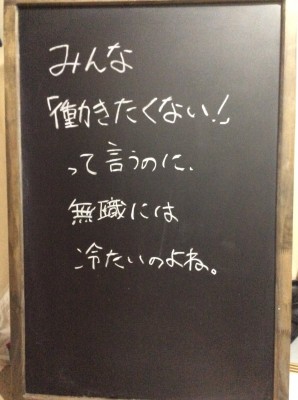 みんな
「働きたくない!」
って言うのに、
無職には
冷たいのよね。